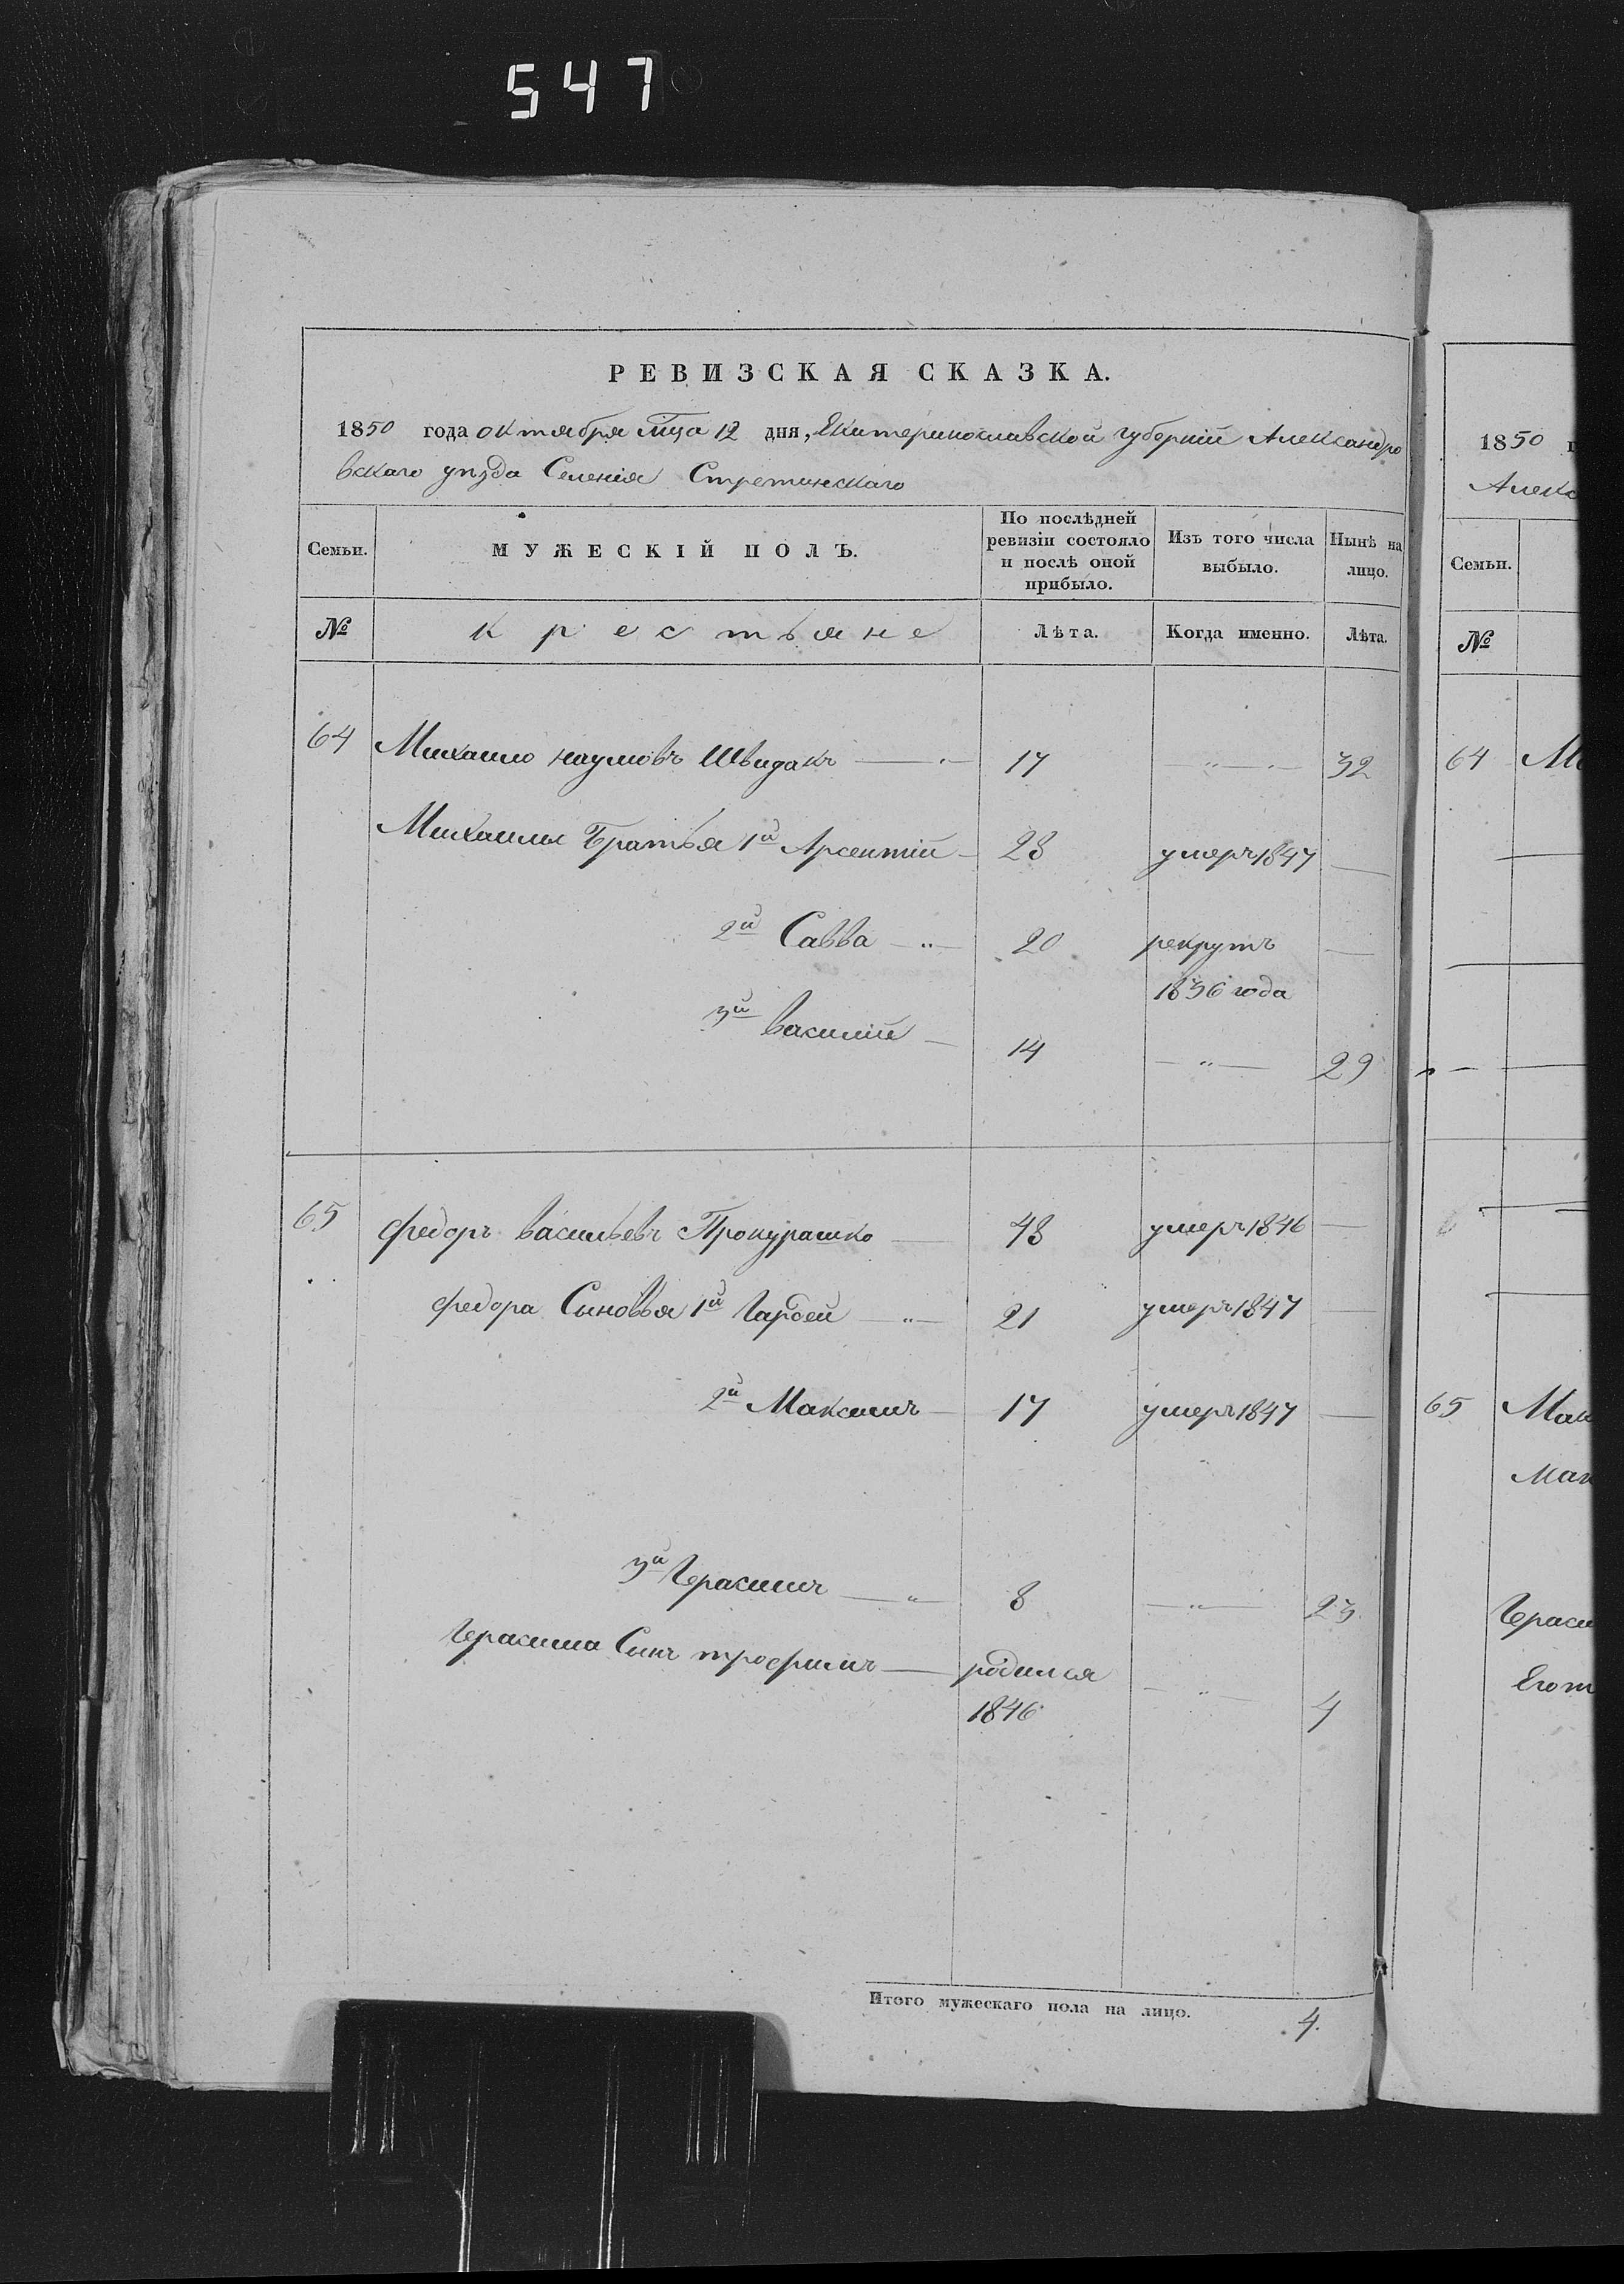 547
РЕВИЗСКАЯ СКАЗКА.
1850 года октября мца 12 дня, Екатеринославской губерніи Александро
вскаго уѣзда Селенія Стретинскаго
Семьи. МУЖЕСКІЙ ПОЛЪ. По послѣдней ревизіи состояло и послѣ оной прибыло. Изъ того числа выбыло. Нынѣ на лицо.
№ крестьяне Лѣта. Когда именно. Лѣта.
64 Михаило наумовъ Швидакъ 17 32
Михаилы Братья 1й Арсентій 23 умеръ 1847
2й Савва 20 рекрутъ
1836 года
3й василій 14 29
65 федоръ васильевъ Прокурашко 43 умеръ 1846
федора Сыновья 1й Гардей 21 умеръ 1847
2й Максимъ 17 умеръ 1847
3й Герасимъ 8 23
Герасима Сынъ трофимъ родился
1846 4
Итого мужескаго пола на лицо. 4.
1850 г
Алекс
Семьи.
№
64 Ми
65 Мак
Мак
Гераси
Егот